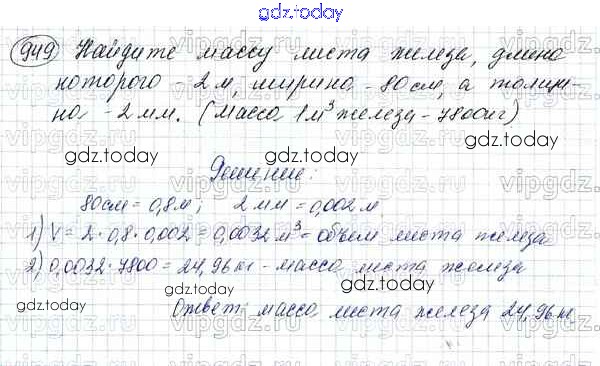 gdz.today
949 Найдите массу листа железа, длина
которого - 2 м, ширина - 80 см, а толщи-
на - 2 мм. (Масса 1 м³ железа - 7800 кг)
gdz.today gdz.today
Решение:
80 см = 0,8 м; 2 мм = 0,002 м
1) V = 2·0,8·0,002 = 0,0032 м³ - объем листа железа
2) 0,0032·7800 = 24,96 кг - масса листа железа
Ответ: масса листа железа 24,96 кг
gdz.today gdz.today